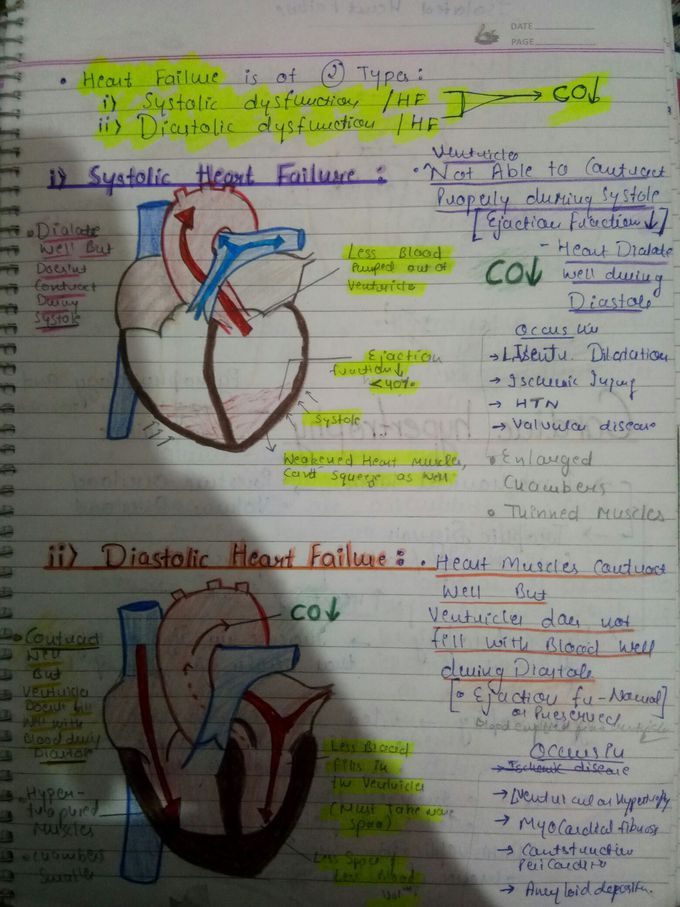 DATE
PAGE
• Heart Failure is of ② Types:
i) Systolic dysfunction / HF
ii) Diastolic dysfunction / HF
CO↓
i) Systolic Heart Failure :
• Ventricles
Not Able to Contract
Properly during Systole
[Ejaction Fraction↓]
- Heart Dialate
well during
Diastole
CO↓
• Dialate
Well But
Doesn't
Contract
During
Systole
Less Blood
Pumped out of
Ventricles
Ejaction
function↓
<40%
Systole
Weakened Heart Muscles,
Can't Squeeze as well
Occurs in
→ Dilatation
→ Ischemic Injury
→ HTN
→ Valvular disease
• Enlarged
Chambers
• Thinned Muscles
ii) Diastolic Heart Failure :
• Heart Muscles Contract
Well But
Ventricles does not
fill with Blood Well
during Diastole
[• Ejaction fn - Normal]
or Preserved
CO↓
• Contract
Well
But
Ventricles
Doesn't fill
Well with
Blood during
Diastole
• Hyper-
Muscles
• Chambers
Smaller
Less Blood
fills in
the Ventricles
(Must Take more
Space)
Less Space/
Less Blood
Occurs in
→ Ischemic disease
→ Ventricular Hypertrophy
→ Myocardial fibrosis
→
Pericardi
→ Amyloid deposit